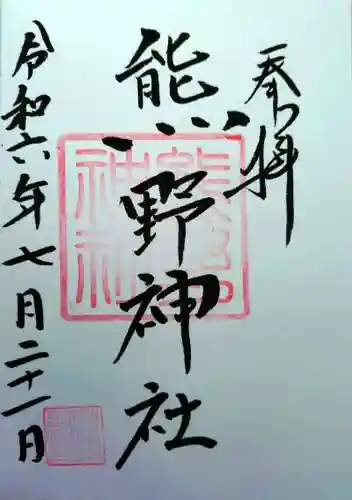 奉拝
熊野神社
令和六年七月二十一日
熊野神社